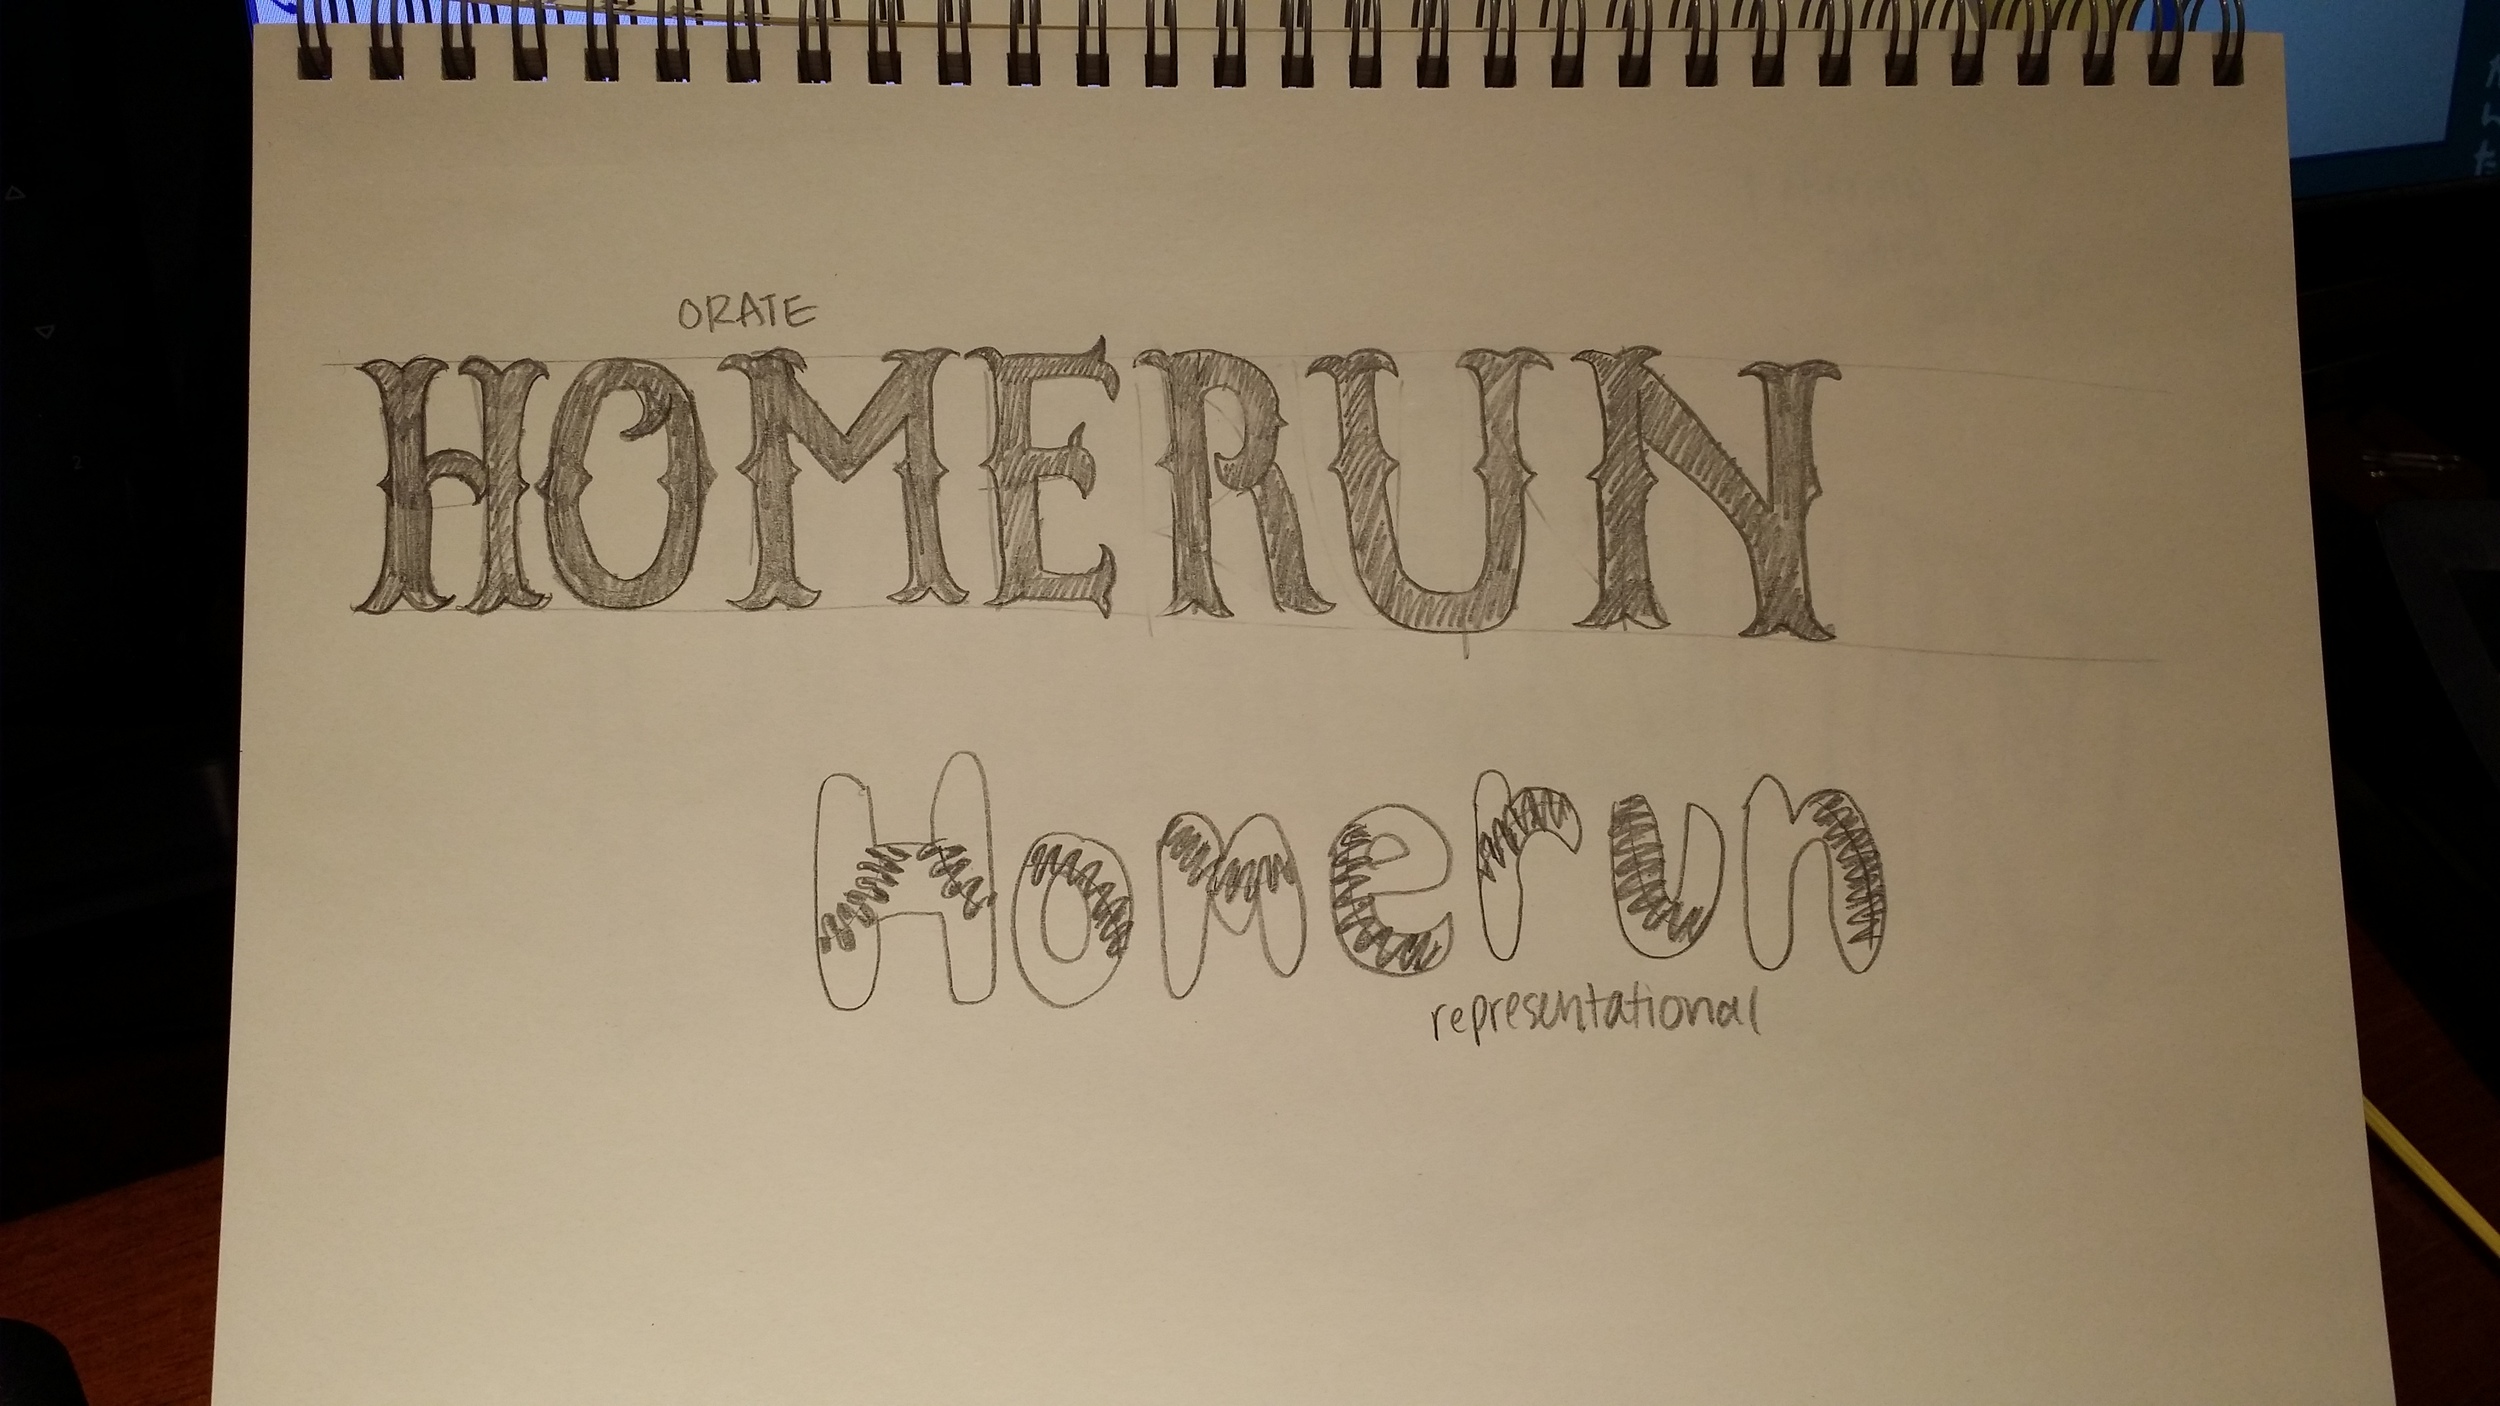 ORATE
HOMERUN
Homerun
representational